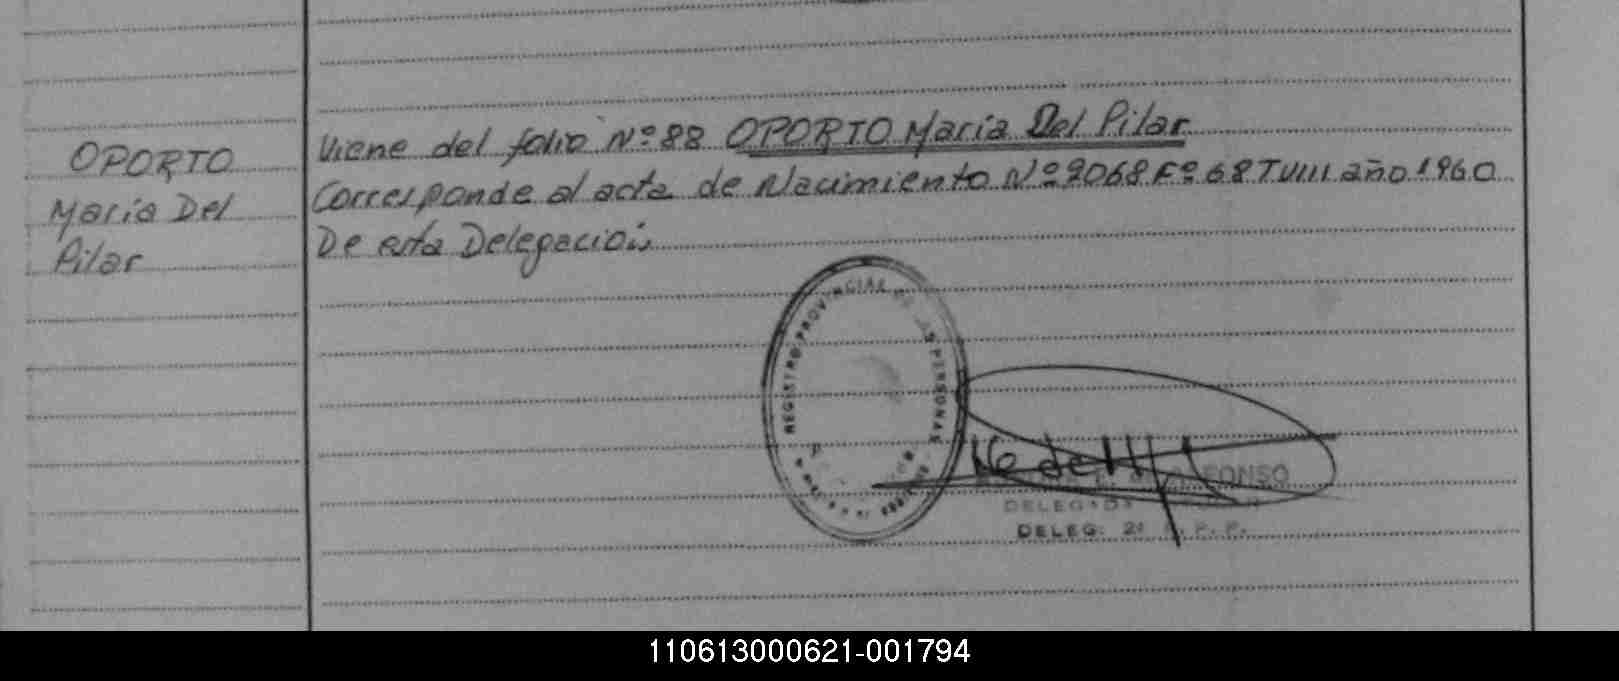 OPORTO
Maria Del
Pilar
Viene del folio Nº 88 OPORTO Maria Del Pilar
Corresponde al acta de Nacimiento Nº 2068 Fº 68 T VIII año 1960
De esta Delegación
REGISTRO PROVINCIAL DE LAS PERSONAS
DELEGADA
DELEG. 2ª R. P. P.
110613000621-001794